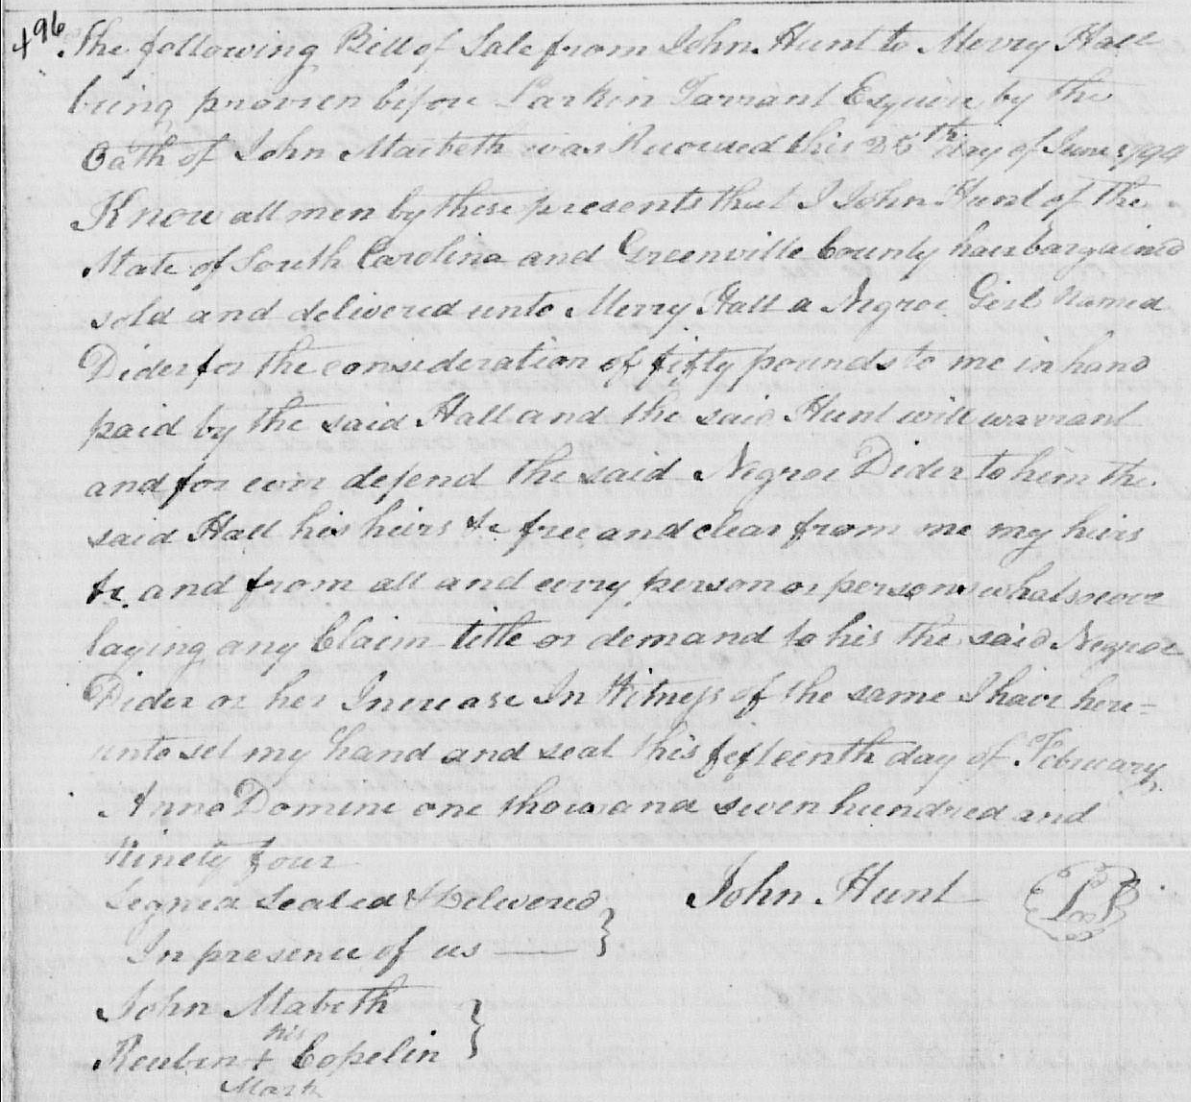 496.
The following Bill of Sale from John Hunt to Merry Hall
being proven before Larkin Tarrant Esquire by the
Oath of John Macbeth was Recorded this 25th day of June 1794
Know all men by these presents that I John Hunt of the
State of South Carolina and Greenville County have bargained
sold and delivered unto Merry Hall a Negroe Girl Named
Dider for the consideration of fifty pounds to me in hand
paid by the said Hall and the said Hunt will warrant
and for ever defend the said Negroe Dider to him the
said Hall his heirs &c free and clear from me my heirs
&c. and from all and every person or persons whatsoever
laying any Claim title or demand to his the said Negroe
Dider or her Increase In Witness of the same I have here=
unto set my hand and seal this fifteenth day of February
Anno Domini one thousand seven hundred and
Ninety four
Signed Sealed & Delivered } John Hunt LS
In presence of us
John Mabeth
his
Reuben + Copelin }
Mark